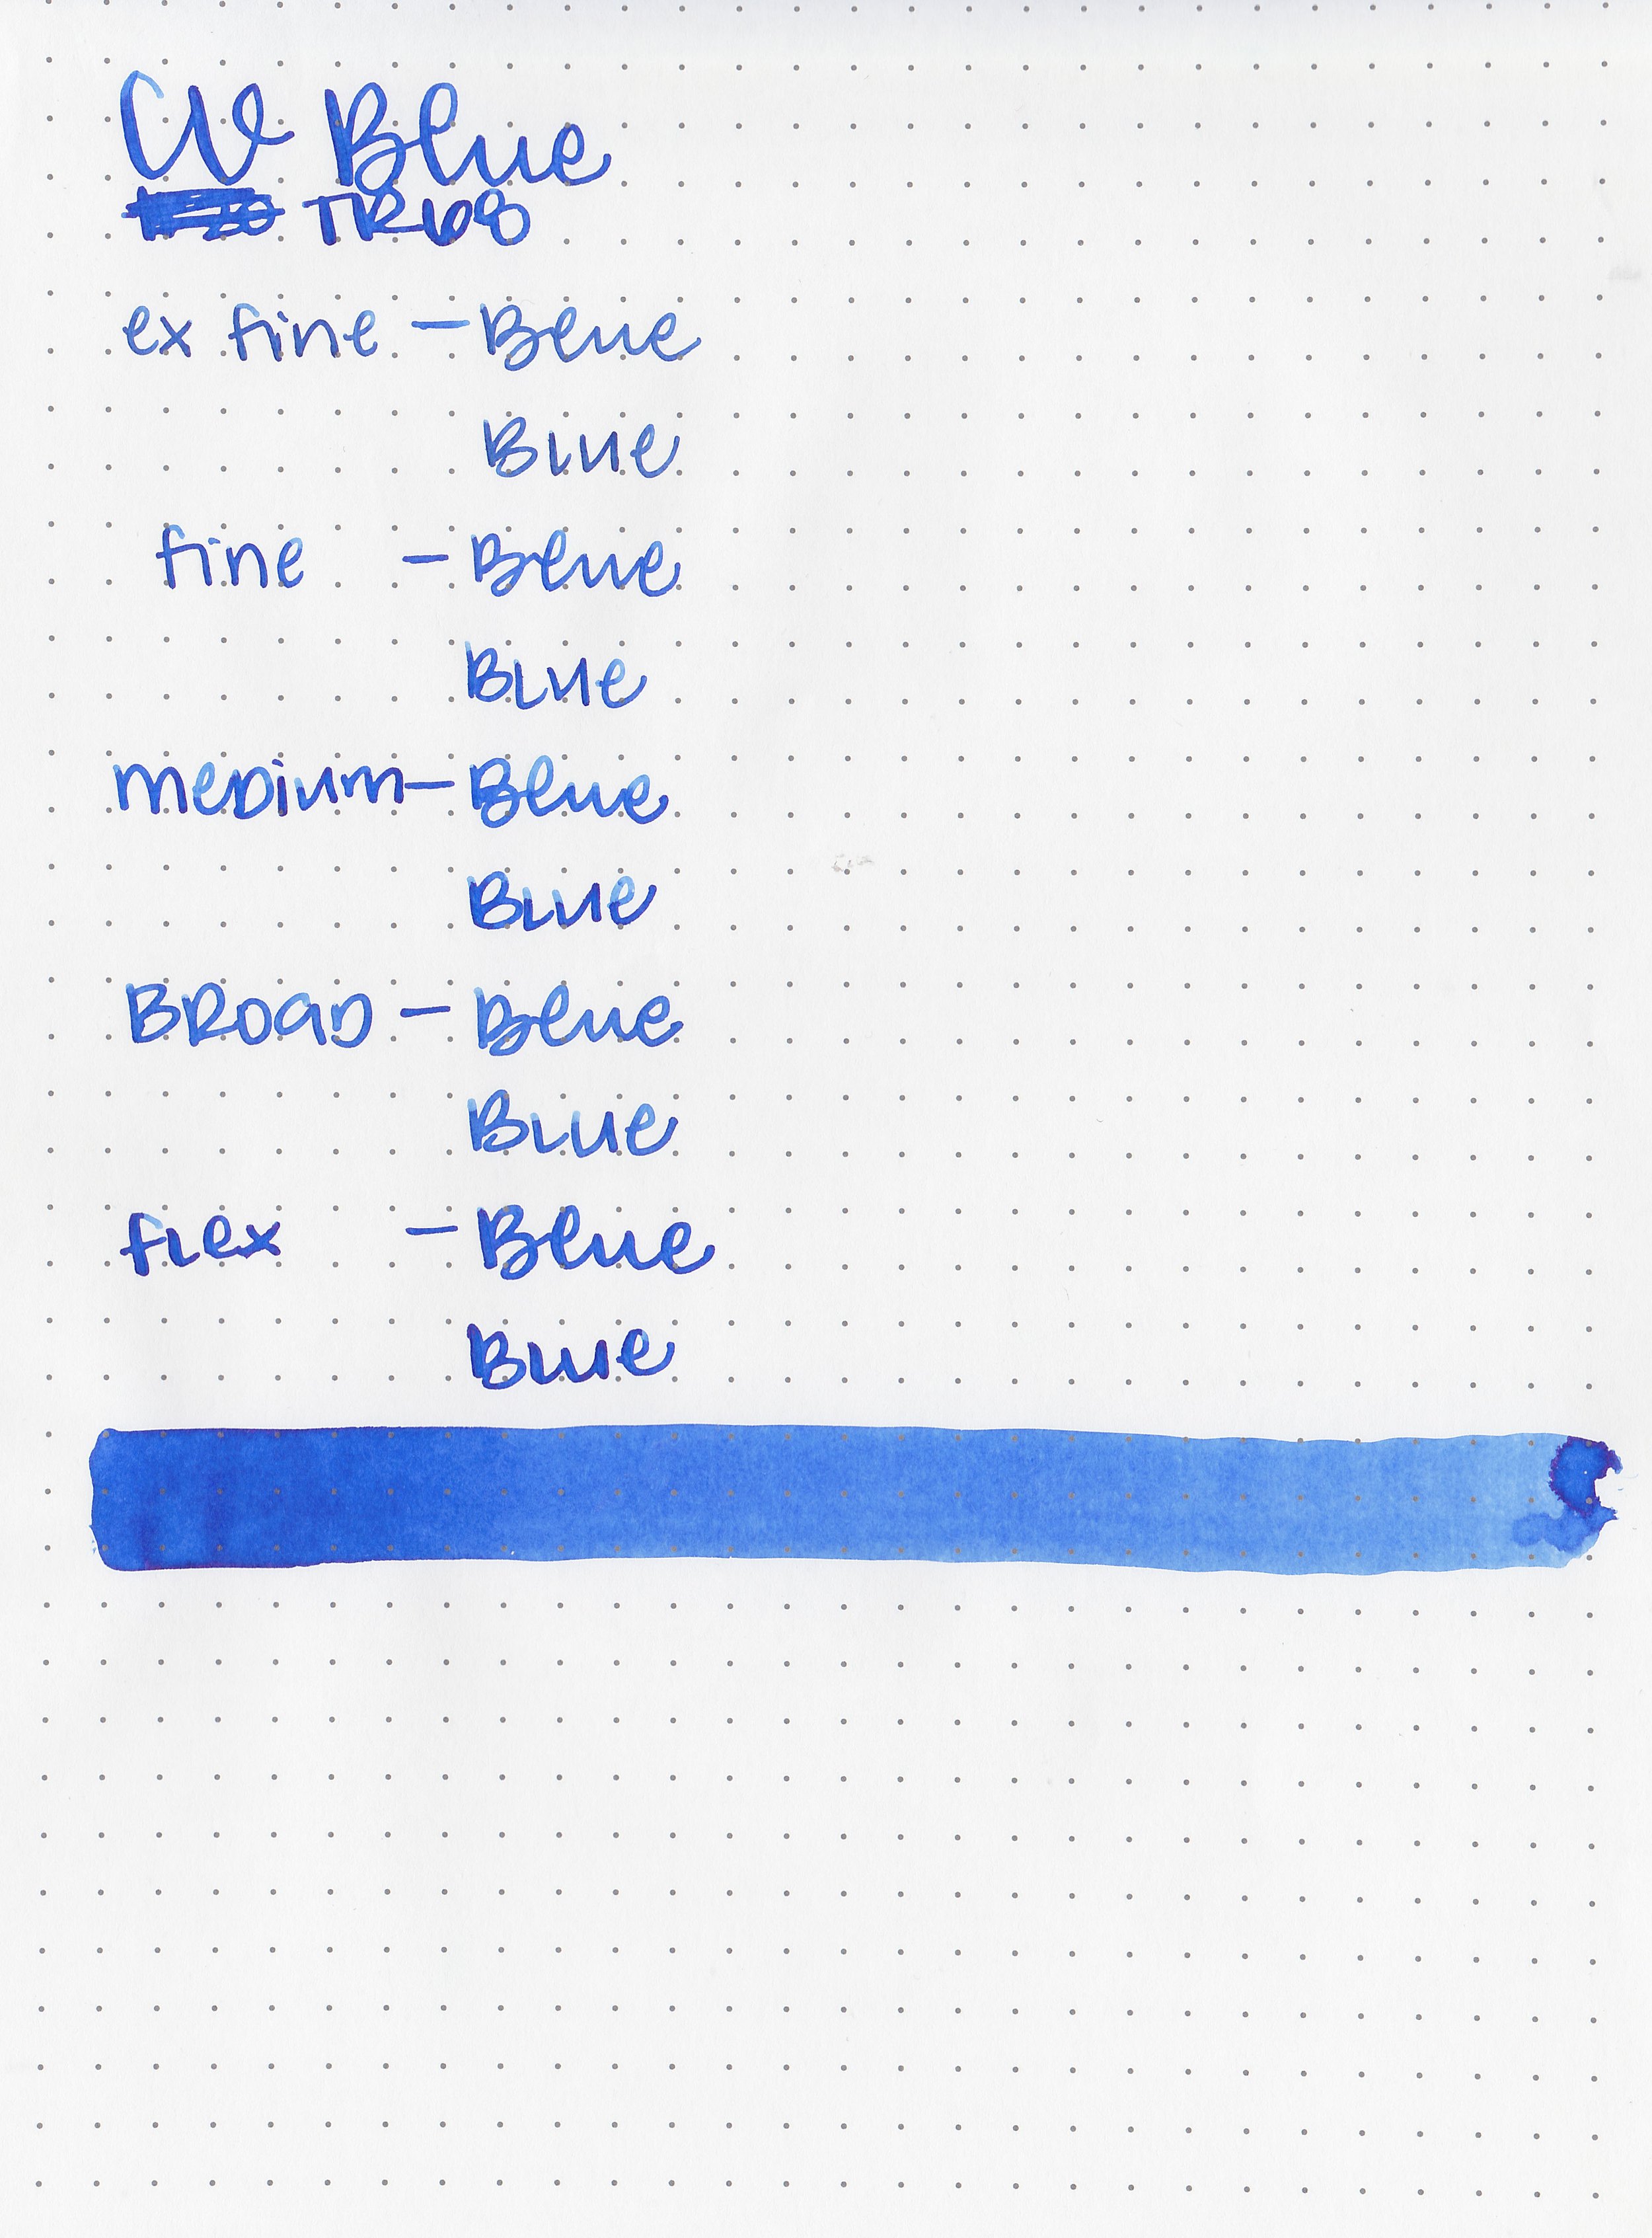 CV Blue
TR68
ex fine - Blue
Blue
fine - Blue
Blue
medium - Blue
Blue
BROAD - Blue
Blue
flex - Blue
Blue